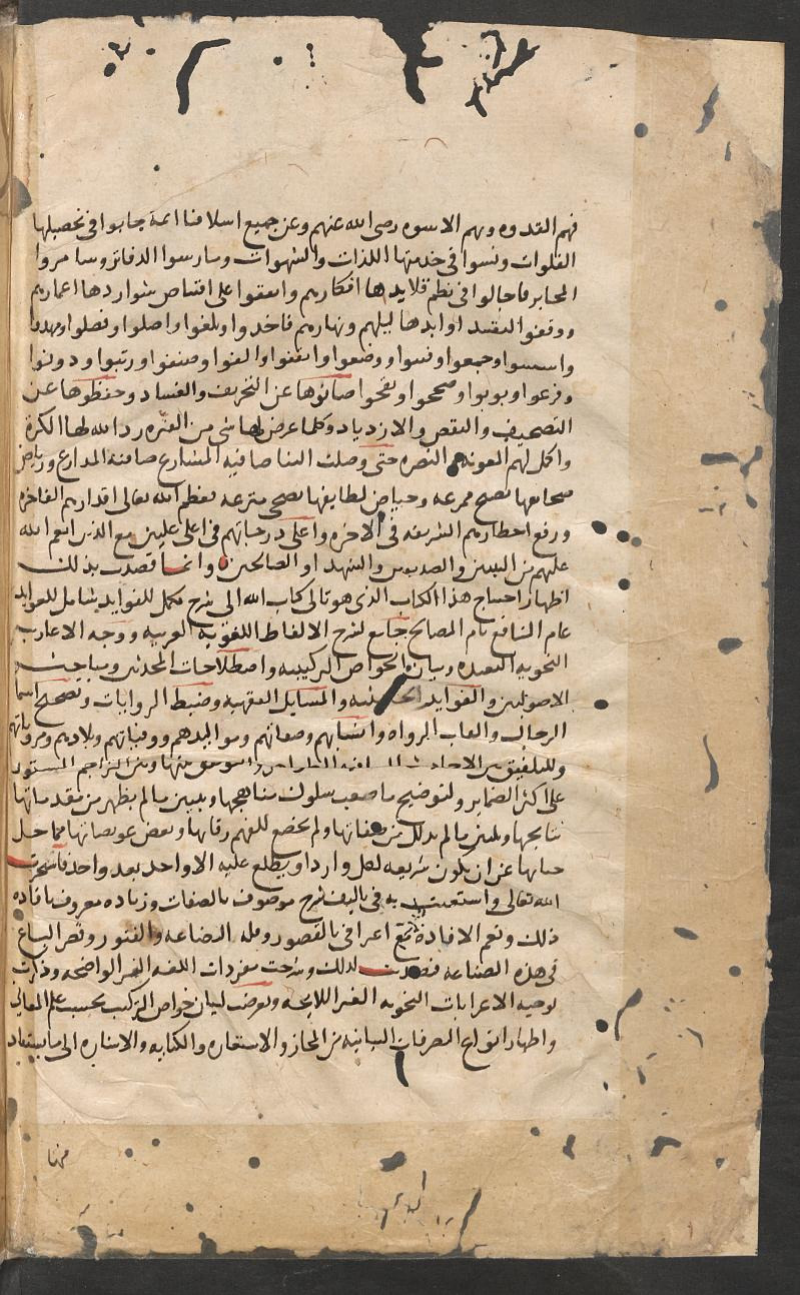 فهم القدوه وبهم الاسوه رضى الله عنهم وعن جميع اسلافنا ائمة جابوا فى تحصيلها
الفلوات ونسوا فى خدمتها اللذات والشهوات ومارسوا الدفاتر وسامروا
المحابر فاجالوا فى نظم قلايدها افكارهم وانفقوا على اقتناص شواردها اعمارهم
ووقفوا لتقييد اوابدها ليلهم ونهارهم فاخذوا وبلغوا واصلوا وفصلوا ومهدوا
واسسوا وجمعوا ووضعوا واتقنوا والفوا وصنفوا ورتبوا ودونوا
وفرعوا وبوبوا وصححوا ونقحوا صانوها عن التحريف والفساد وحفظوها عن
التصحيف والنقص والازدياد وكلما عرض لها شى من الفتره رد الله لها الكرة
واكمل لهم العونه النصره حتى وصلت الينا صافيه المشارع ضافية المدارع ورياض
فعظم الله تعالى اقدارهم الفاخره
ورفع اخطارهم الشريفه فى الاخره واعلى درجاتهم فى اعلى عليين مع الذين انعم الله
عليهم من النبيين والصديقين والشهداو الصالحين وانما قصدت بذلك
اظهار احتياج هذا الكتاب الذى هو تالى كتاب الله الى شرح مكمل للفوايد شامل للعوايد
عام المنافع تام المصالح جامع لشرح الالفاظ اللغويه العربيه ووجه الاعاريب
النحويه البعيده وبيان الخواص التركيبيه واصطلاحات المحدثين ومباحث
الاصوليين والفوايد والمسايل الفقهيه وضبط الروايات وتصحيح اسما
الرجال والقاب الرواه وانسابهم وصفاتهم ومواليدهم ووفياتهم وبلادهم ومروياتهم
وللتلفيق بين الاحاديث
على اكثر الضماير ولتوضيح ما صعب سلوك مناهجها وتبيين مالم يظهر من مقدماتها
نتايجها وليلين مالم يذلل من صفاتها ولم يخضع للفهم رقابها وبعض عويصاتها مما جل
جنابها عن ان يكون شريعه لكل وارد او يطلع عليه الا واحد بعد واحد فاستخرت
الله تعالى واستعنت به فى تاليف شرح موصوف بالصفات وزياده معروف بافاده
ذلك ونعم الافادة مع اعترافى بالقصور وقله البضاعه والفتور وقصر الباع
فى هذه الصناعه فتصديت لذلك وشرحت مفردات اللغه الغير الواضحه وذكرت
توجيه الاعرابات النحويه الغير اللايحه وتعرضت لبيان خواص التركيب بحسب علم المعانى
واظهار انواع التصرفات البيانيه من المجاز والاستعاره والكنايه والاشاره الى ما يستفاد
منها